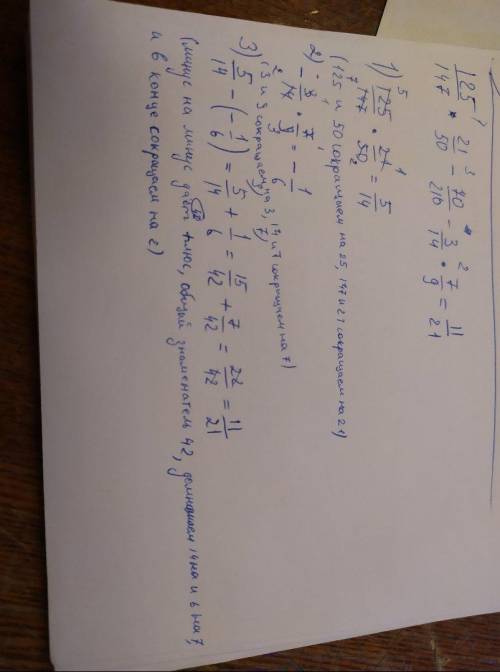 125/147 ¹ · 21/50 ³ - 70/210 - 3/14 ² · 7/9 = 11/21
1) ⁵125/₇147 · 21¹/50₂ = 5/14
(125 и 50 сокращаем на 25, 147 и 21 сокращаем на 21)
2) - 3/₂14 · 7/9 = - 1/6
(3 и 9 сокращаем на 3, 14 и 7 сокращаем на 7)
3) 5/14 - (- 1/6) = 5/14 + 1/6 = 15/42 + 7/42 = 22/42 = 11/21
(минус на минус даёт плюс, общий знаменатель 42, 14 на и 6 на 7,
и в конце сокращаем на 2)